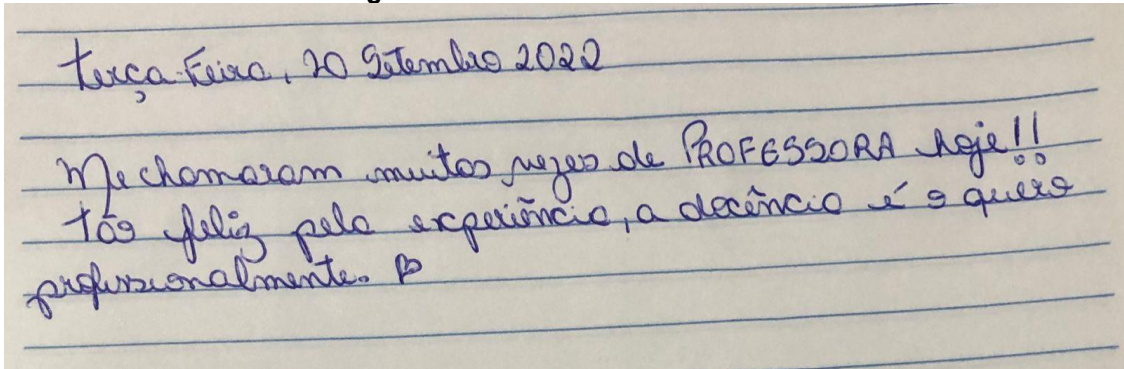 terça-Feira, 20 Setembro 2022
Me chamaram muitas vezes de PROFESSORA hoje!!
tão feliz pela experiência, a docência é o quero
profissionalmente. ♡